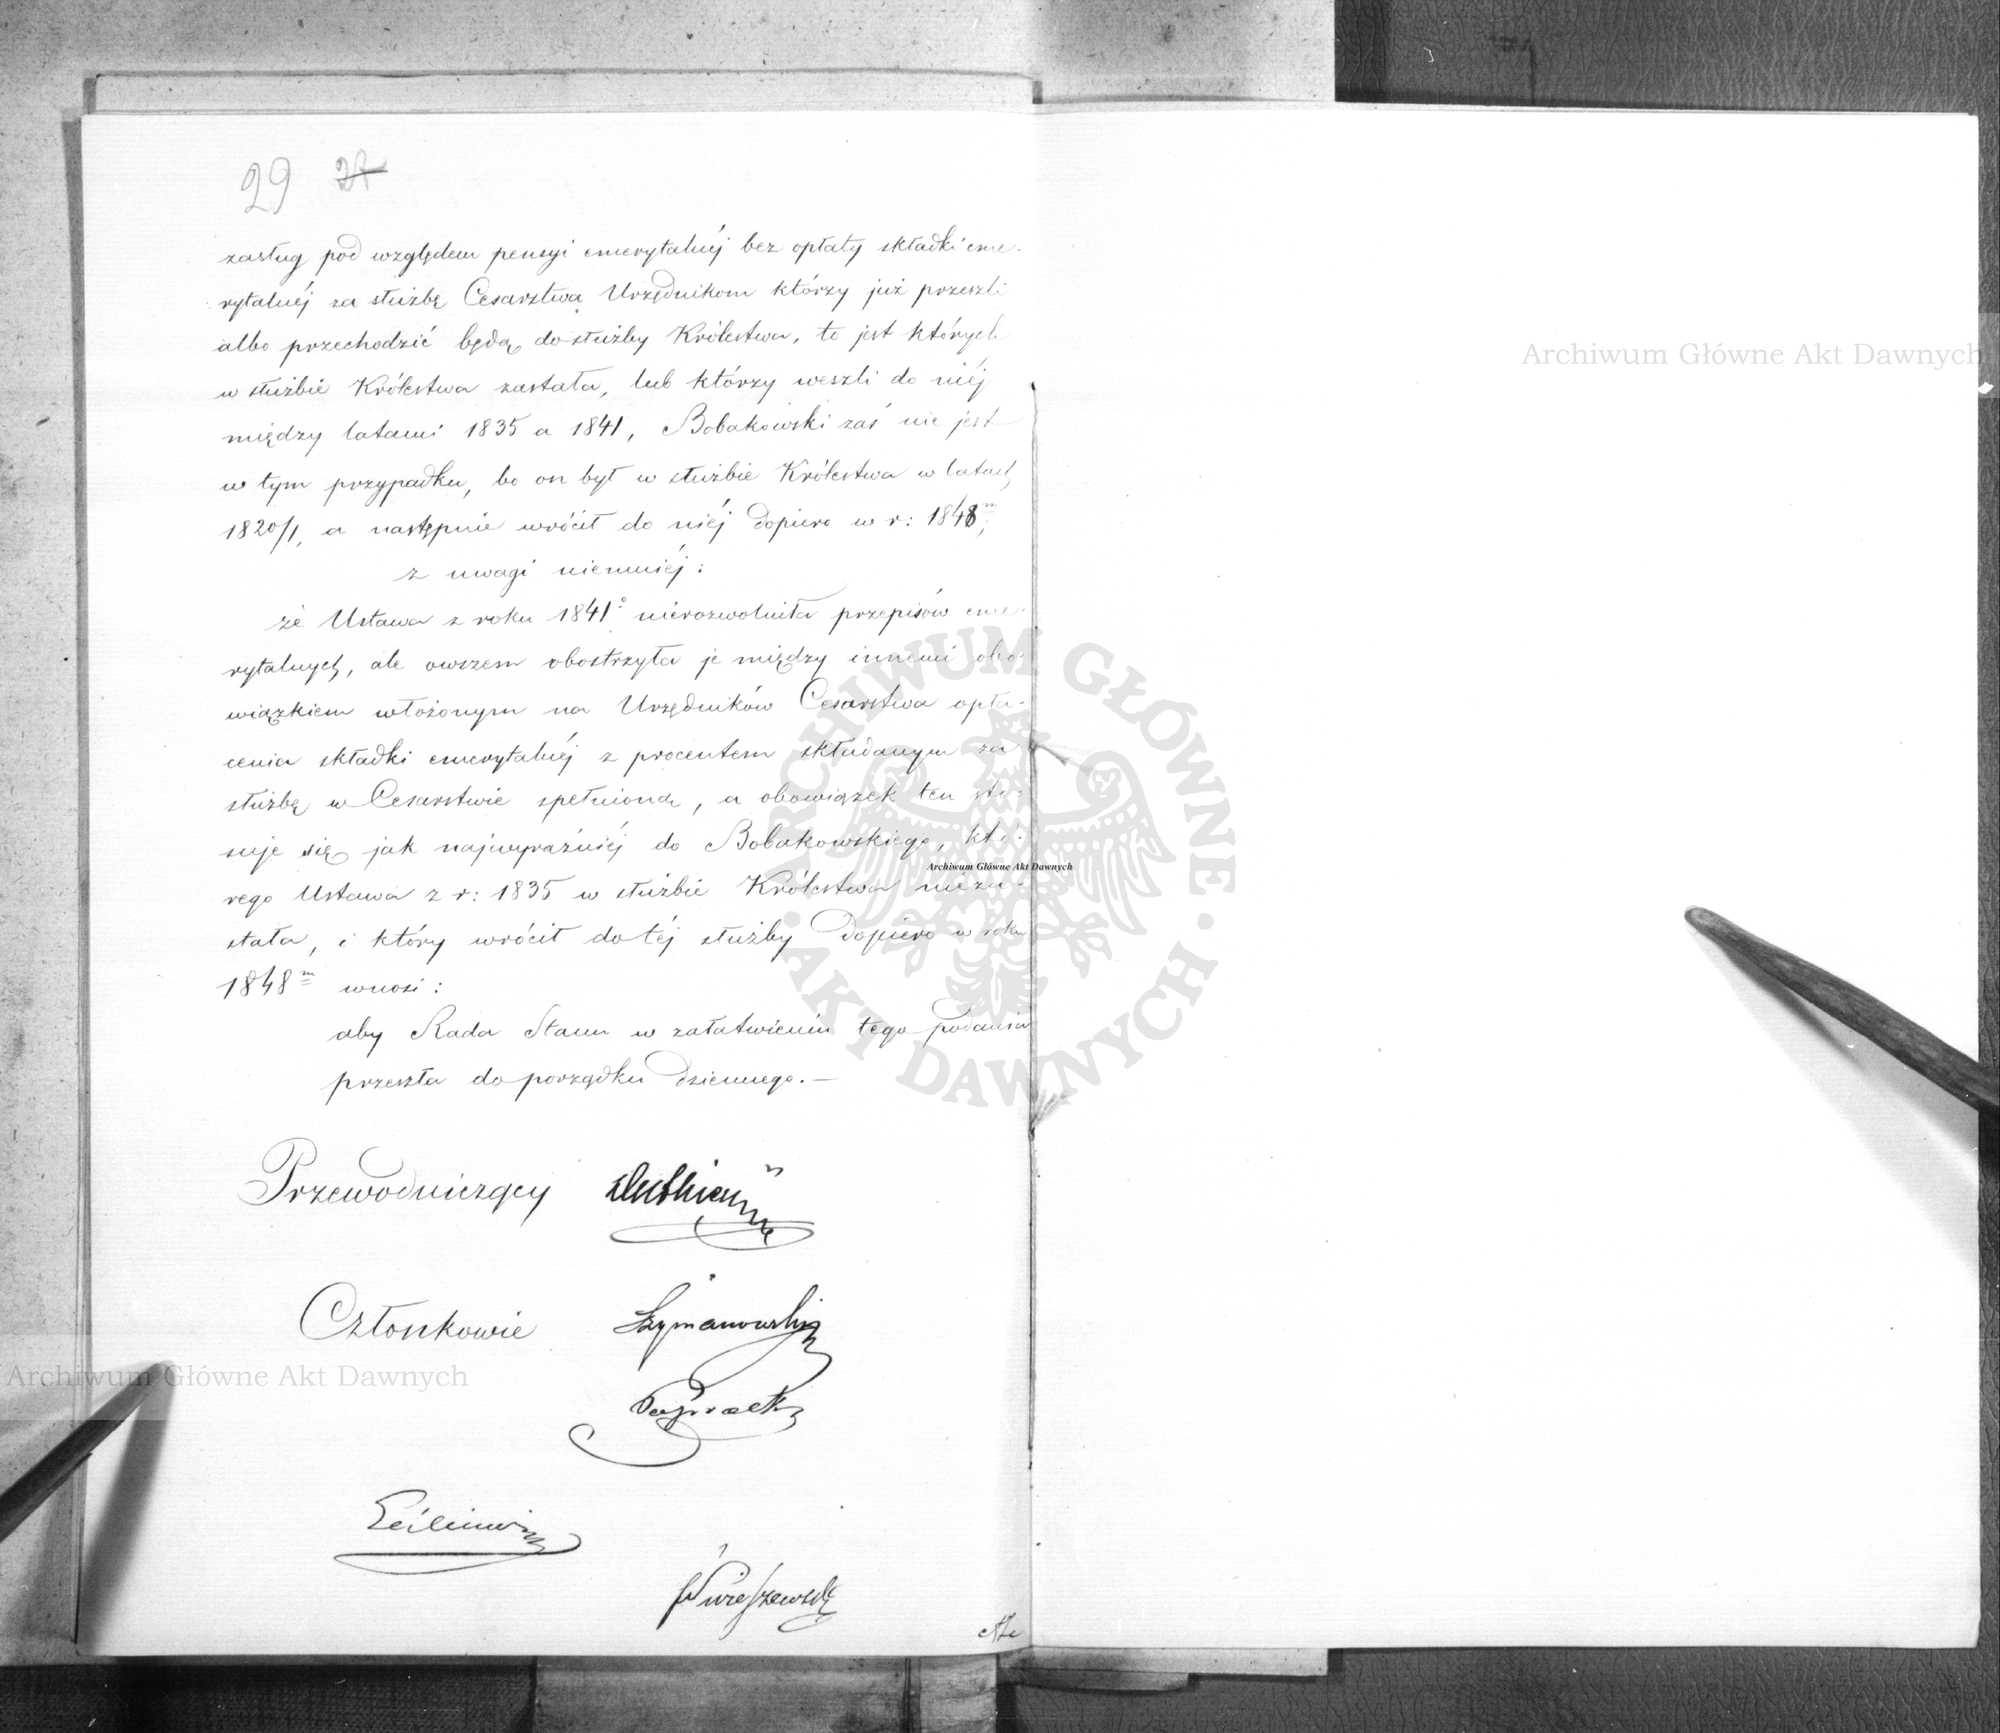 29 27
zasług pod względem pensyi emerytalnéj bez opłaty składki eme-
rytalnéj za służbę Cesarstwa Urzędnikom którzy już przeszli
albo przechodzić będą do służby Królestwa, to jest których
w służbie Królestwa zastała, lub którzy weszli do niéj
między latami 1835 a 1841, Bobakowski zaś nie jest
w tym przypadku, bo on był w służbie Królestwa w latach
1820/1, a następnie wrócił do niéj dopiero w r: 1848m,
z uwagi niemniéj:
że Ustawa z roku 1841o nierozwolniła przepisów eme-
rytalnych, ale owszem obostrzyła je między innemi obo-
wiązkiem włożonym na Urzędników Cesarstwa opła-
cenia składki emerytalnéj z procentem składanym za
służbę w Cesarstwie spełnioną, a obowiązek ten sto-
suje się jak najwyraźniéj do Bobakowskiego, któ-
rego Ustawa z r: 1835 w służbie Królestwa nieza-
stała, i który wrócił do téj służby dopiero w roku
1848m wnosi:
aby Rada Stanu w załatwieniu tego podania
przeszła do porządku dziennego.—
Przewodniczący
Członkowie Szymanowski
Archiwum Główne Akt Dawnych
Archiwum Główne Akt Dawnych
Archiwum Główne Akt Dawnych
ARCHIWUM GŁÓWNE AKT DAWNYCH